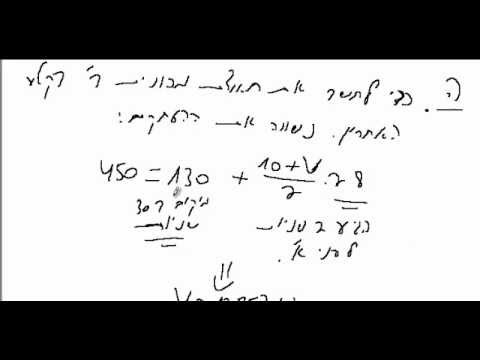 ה. כדי לחשב את תאוצת מכונית ב' בקטע
האחרון, נשווה את ההעתקים:
450 = 130 + (10+V)/2 · 28
מיקום ב 30 שניות
הגיע 2 שניות לפני א'.
⇓